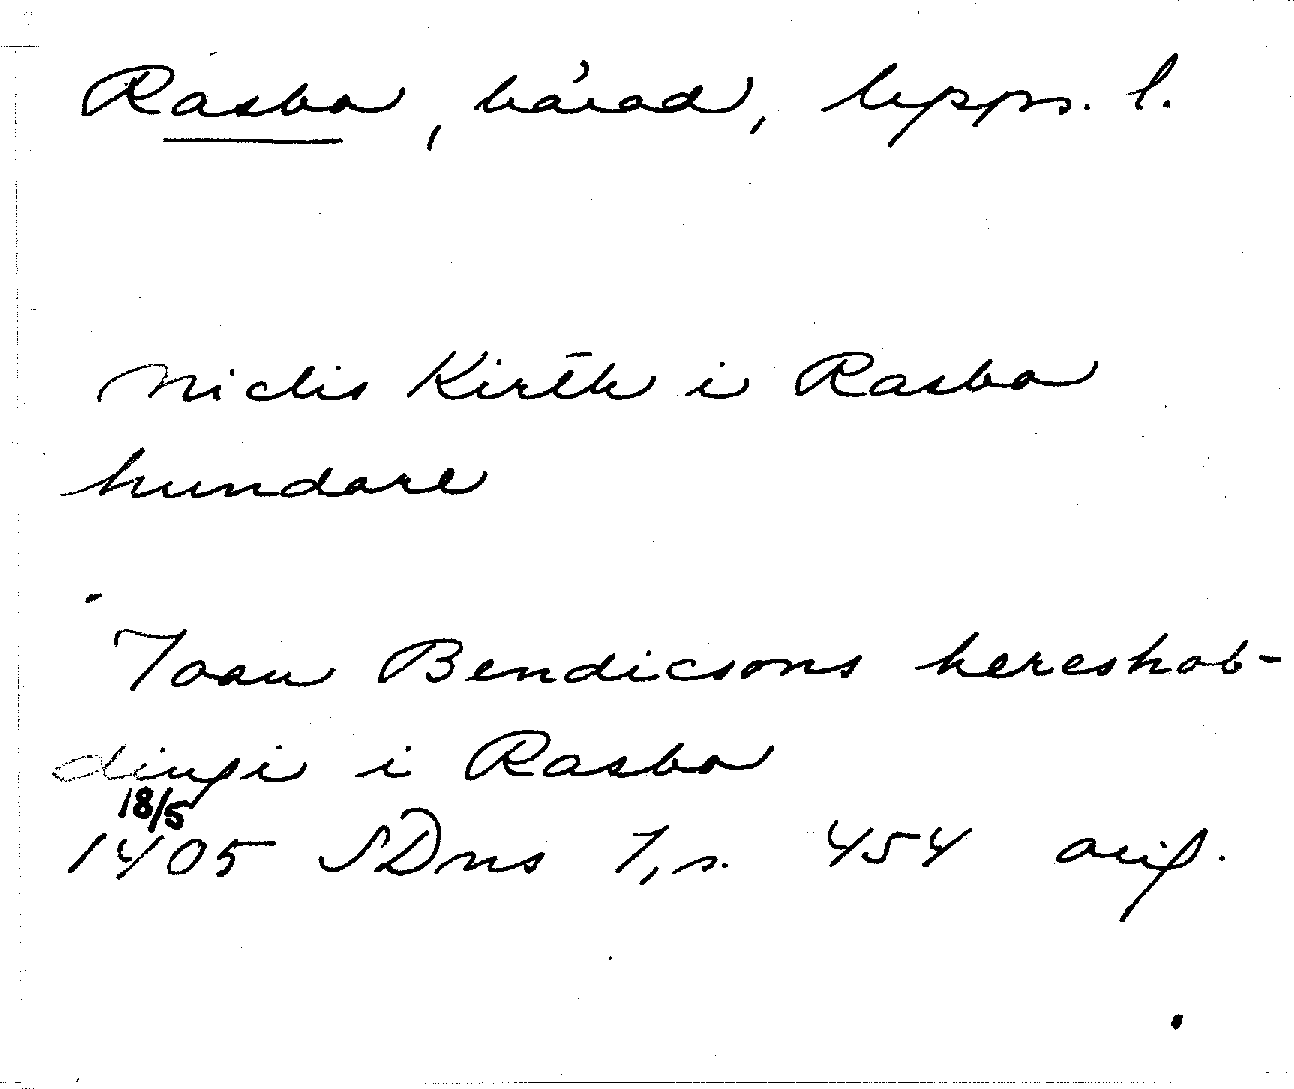 Rasbo, härad, Upps. l.
Niclis Kirth i Rasbo
hundare
Joan Bendicsons hereshob-
dingi i Rasbo
18/5
1405 SDns 1, s. 454 orig.